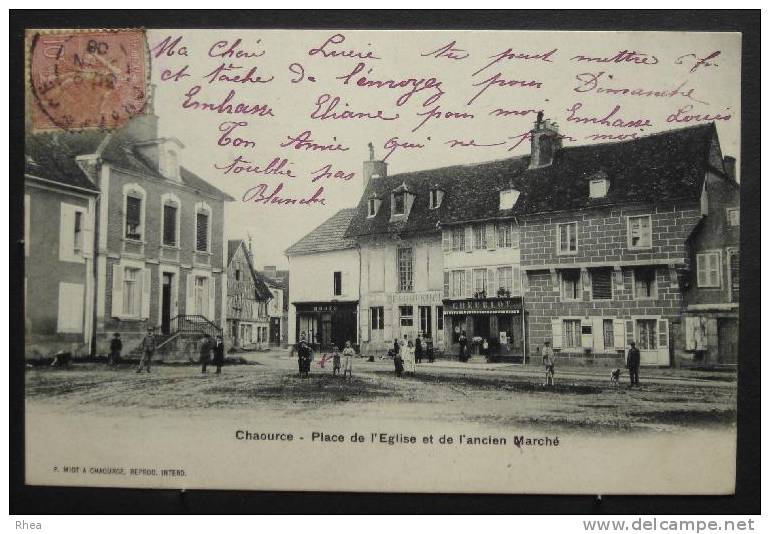 Ma Chér Lucie tu peut mettre 6 fr
et tâche de l'envoyez pour Dimanche
Embrasse Eliane pour moi Embrasse Louis
Ton Amie qui ne pour moi
t'oublie pas
Blanche
CHEURLOT
Chaource - Place de l'Eglise et de l'ancien Marché
P. MIOT A CHAOURCE. REPROD. INTERD.
Rhea
http://www.delcampe.net